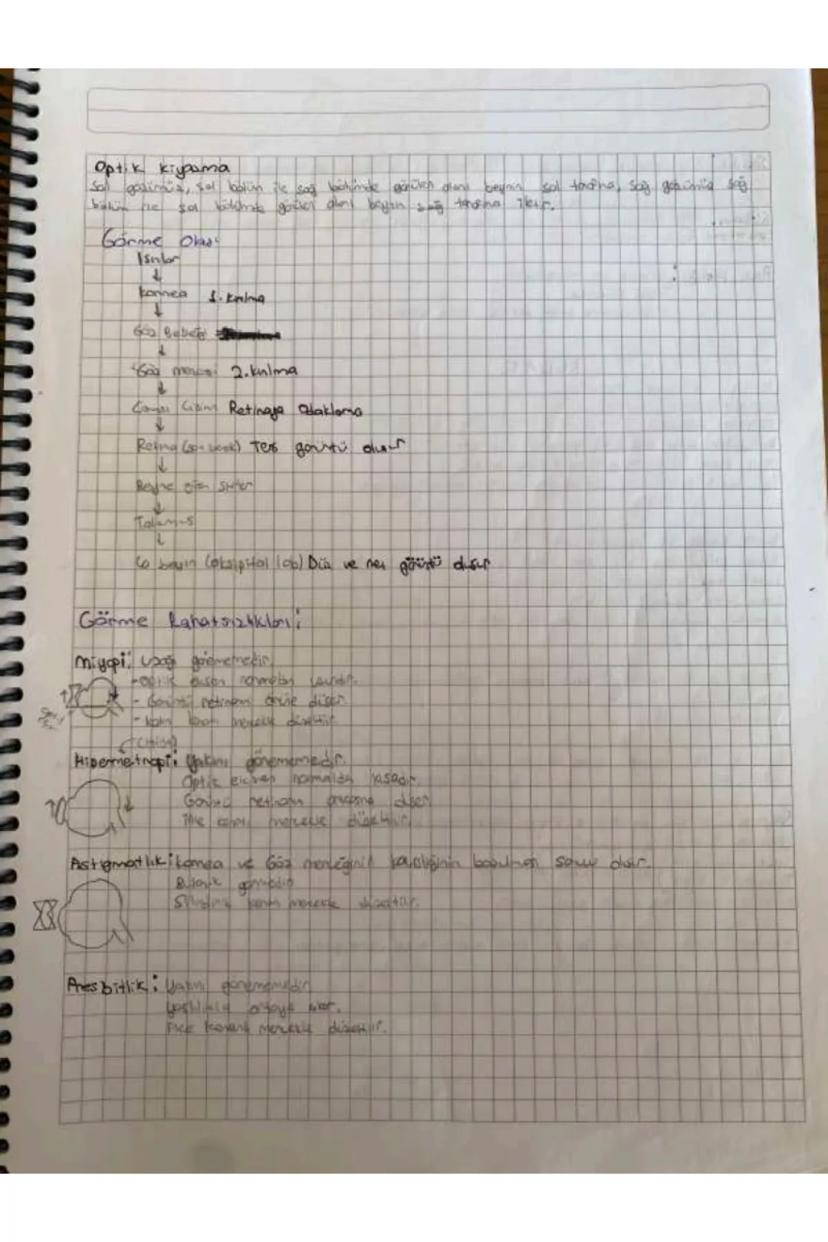 Optik kiyazma
Sol gözümüz, sol bölün ile sağ bölümde görülen alanı beynin sol tarafına, sağ gözümüz sağ
bölün ile sol bölümde görülen alanı beynin sağ tarafına iletir.
Görme Olayı
Işınlar
↓
Kornea 1. kırılma
↓
Göz Bebeği
↓
Göz merceği 2. kırılma
↓
Camsı Cisim Retinaya Odaklama
↓
Retina (sarı benek) Ters görüntü oluşur
↓
Beyne giden sinirler
↓
Talamus
↓
Uç beyin (oksipital lob) Düz ve net görüntü oluşur
Görme Rahatsızlıkları:
Miyopi: Uzağı görememedir.
- Optik eksen normalden uzundur.
- Görüntü retinanın önüne düşer.
- Kalın kenarlı mercekle düzeltilir.
Hipermetropi: Yakını görememedir.
Optik eksen normalden kısadır.
Görüntü retinanın arkasına düşer.
İnce kenarlı mercekle düzeltilir.
Astigmatlık: Kornea ve Göz merceğinin kavisliğinin bozulması sonucu oluşur.
Bulanık görmedir.
Silindirik kenarlı mercekle düzeltilir.
Presbitlik: Yakını görememedir.
Yaşlılıkla ortaya çıkar.
İnce kenarlı mercekle düzeltilir.